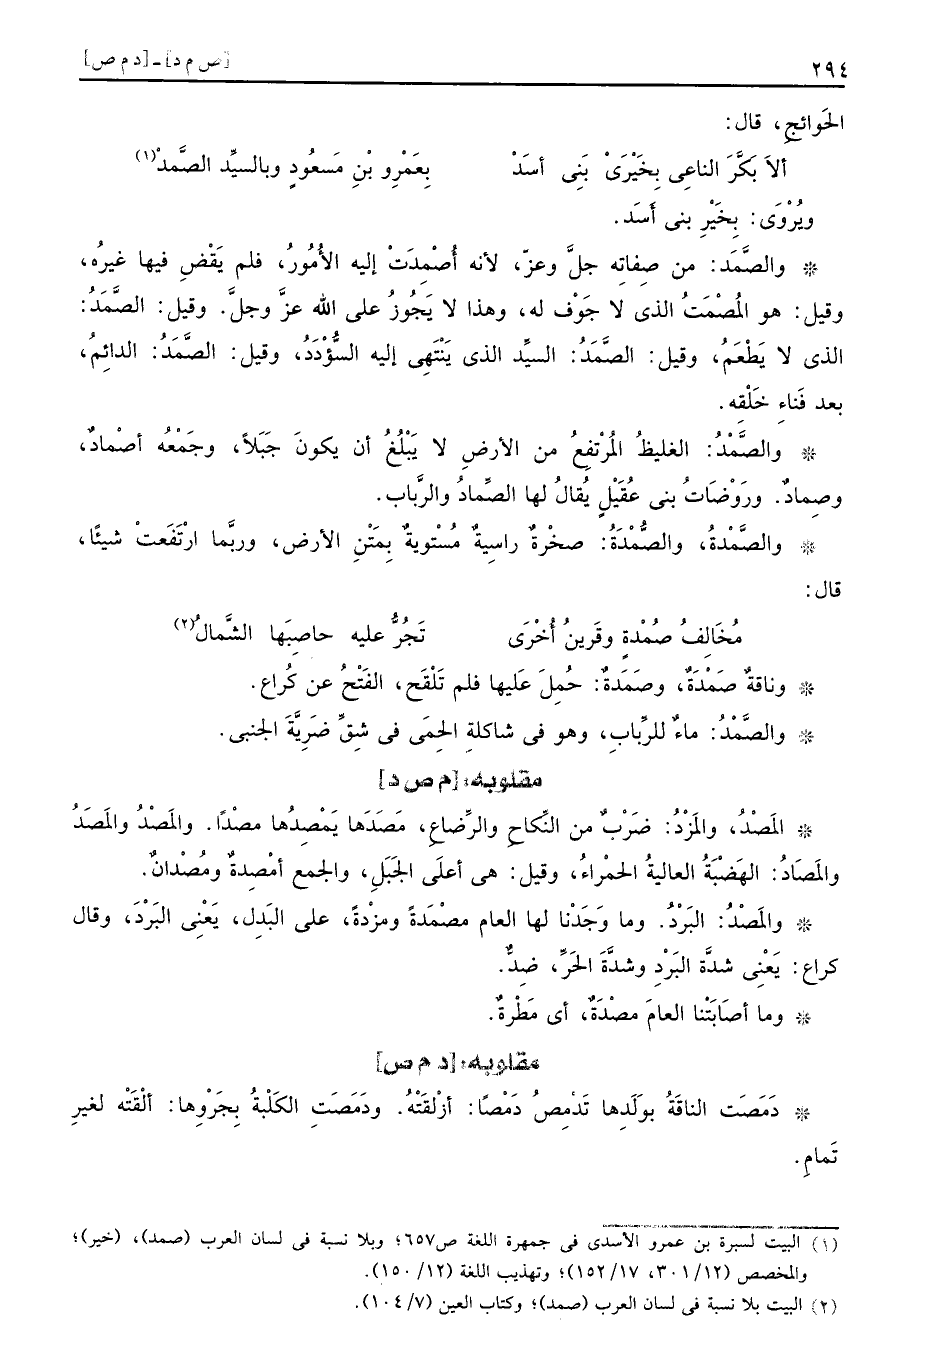 ٢٩٤
[ص م د] ـ [د م ص]
الحَوائجِ، قال:
ألاَ بَكَّرَ الناعِى بِخَيْرَىْ بَنِى أسَدْ بِعَمْرِو بْنِ مَسعُودٍ وبالسيِّدِ الصَّمدْ(١)
ويُرْوَى: بِخَيْرِ بنى أَسَد.
* والصَّمَد: من صفاته جلَّ وعزّ، لأنه أُصْمِدَتْ إليه الأُمورُ، فلم يَقْضِ فيها غيرُه،
وقيل: هو المُصْمَتُ الذى لا جَوْف له، وهذا لا يَجوزُ على الله عزَّ وجلَّ. وقيل: الصَّمَدُ:
الذى لا يَطْعَمُ، وقيل: الصَّمَدُ: السيِّد الذى يَنْتَهِى إليه السُّؤْدَد، وقيل: الصَّمَدُ: الدائمُ،
بعد فَناءِ خَلْقِه.
* والصَّمْدُ: الغليظُ المُرْتفِعُ من الأرضِ لا يَبْلُغُ أن يكونَ جَبَلاً، وجَمْعُه أصْمادٌ،
وصِمادٌ. ورَوْضَاتُ بنى عُقَيْلٍ يُقالُ لها الصِّمادُ والرَّباب.
* والصَّمْدةُ، والصُّمْدَةُ: صخْرةٌ راسِيةٌ مُسْتويةٌ بِمَتْنِ الأرض، وربَّما ارْتَفَعتْ شيئًا،
قال:
مُخَالِفُ صُمْدةٍ وقَرِينُ أُخْرَى تَجُرُّ عليه حاصِبَها الشَّمالُ(٢)
* وناقةٌ صَمْدَةٌ، وصَمَدةٌ: حُمِلَ عَليها فلم تَلْقَح، الفَتْحُ عن كُراع.
* والصَّمْدُ: ماءٌ للرِّباب، وهو فى شاكلةِ الحِمَى فى شِقِّ ضَرِيَّةَ الجنبى.
مقلوبه: [م ص د]
* المَصْدُ، والمَزْدُ: ضَرْبٌ من النِّكاحِ والرِّضاعِ، مَصَدَها يَمْصِدُها مصْدًا. والمَصْدُ والمَصَدُ
والمَصَادُ: الهَضْبَةُ العالية الحمْراءُ، وقيل: هى أعلَى الجَبَلِ، والجمع أمْصِدةٌ ومُصْدانٌ.
* والمَصْدُ: البَرْدُ. وما وَجَدْنا لها العام مصْمَدةً ومزْدةً، على البَدل، يَعْنِى البَرْدَ، وقال
كراع: يَعْنِى شدَّةَ البَرْدِ وشدَّةَ الحَرِّ، ضِدٌّ.
* وما أصابَتْنا العامَ مصْدَةٌ، أى مَطْرةٌ.
مقلوبه: [د م ص]
* دَمَصَت الناقَةُ بولَدِها تَدْمِصُ دَمْصًا: أزْلقَتْهُ. ودَمَصَت الكَلْبةُ بِجَرْوِها: ألْقَتْه لغيرِ
تَمامٍ.
(١) البيت لسبرة بن عمرو الأسدى فى جمهرة اللغة ص٦٥٧؛ وبلا نسبة فى لسان العرب (صمد)، (خير)؛
والمخصص (٣٠١/١٢، ١٥٢/١٧)؛ وتهذيب اللغة (١٥٠/١٢).
(٢) البيت بلا نسبة فى لسان العرب (صمد)؛ وكتاب العين (١٠٤/٧).